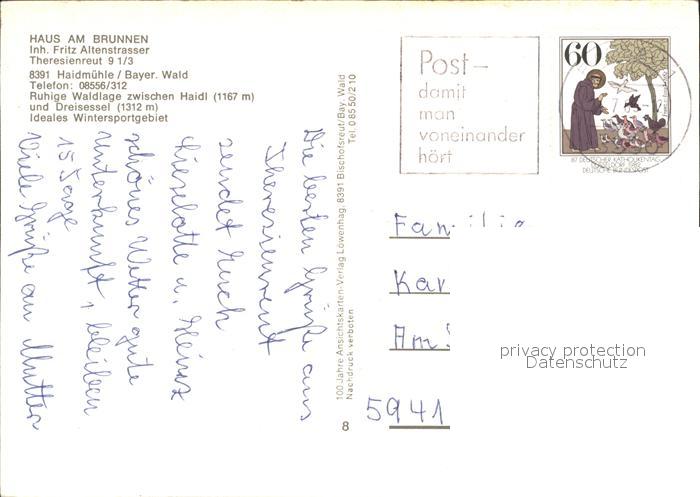 HAUS AM BRUNNEN
Inh. Fritz Altenstrasser
Theresienreut 9 1/3
8391 Haidmühle / Bayer. Wald
Telefon: 08556/312
Ruhige Waldlage zwischen Haidl (1167 m)
und Dreisessel (1312 m)
Ideales Wintersportgebiet
Die besten Grüße aus
Theresienreut
sendet Euch
Lieselotte u. Heinz
schönes Wetter gute
Unterkunft, bleiben
15 Tage
Viele Grüße an Mutter
100 Jahre Ansichtskarten-Verlag Löwenhag, 8391 Bischofsreut/Bay. Wald
Nachdruck verboten
Tel. 08550/210
8
Post-
damit
man
voneinander
hört
60
87. DEUTSCHER KATHOLIKENTAG
DÜSSELDORF 1982
DEUTSCHE BUNDESPOST
Fam
Kar
Am
5941
privacy protection
Datenschutz